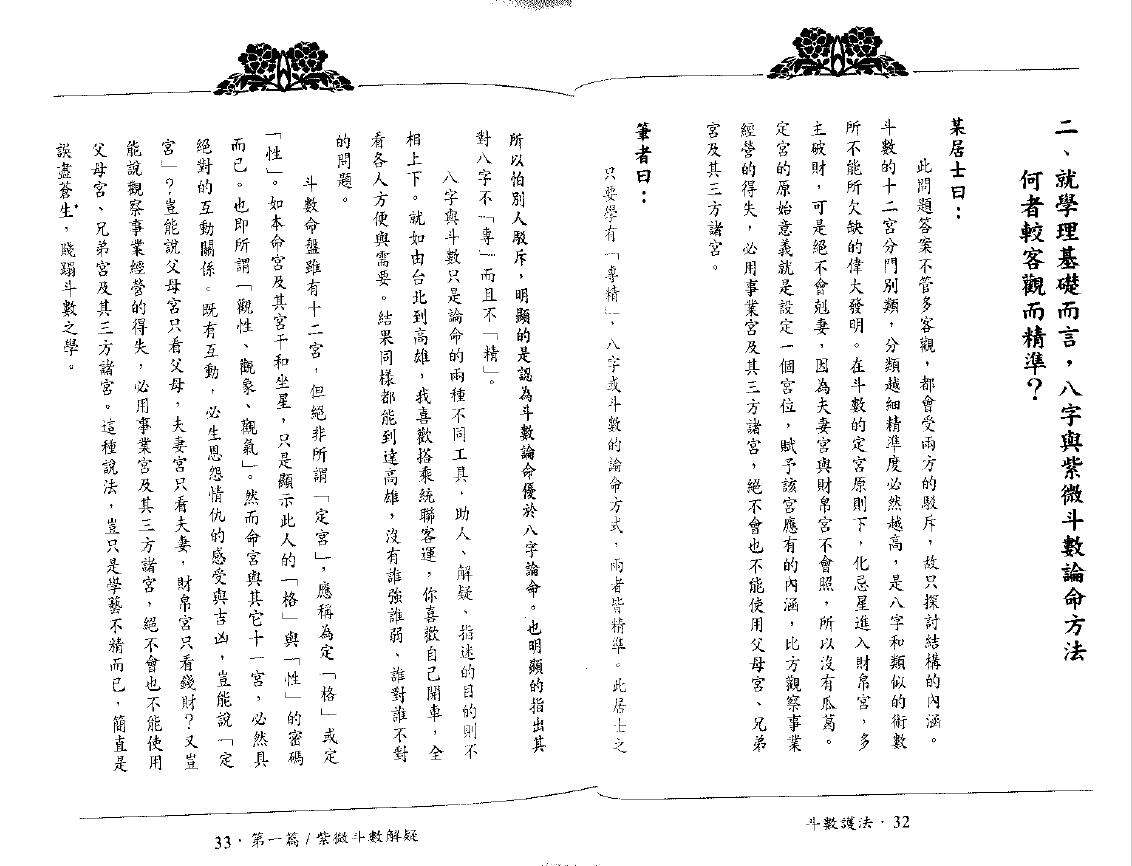 二、就學理基礎而言，八字與紫微斗數論命方法
何者較客觀而精準？
某居士曰：
此問題答案不管多客觀，都會受兩方的駁斥，故只探討結構的內涵。
斗數的十二宮分門別類，分類越細精準度必然越高，是八字和類似的術數
所不能所欠缺的偉大發明。在斗數的定宮原則下，化忌星進入財帛宮，多
主破財，可是絕不會剋妻，因為夫妻宮與財帛宮不會照，所以沒有瓜葛。
定宮的原始意義就是設定一個宮位，賦予該宮應有的內涵，比方觀察事業
經營的得失，必用事業宮及其三方諸宮，絕不會也不能使用父母宮、兄弟
宮及其三方諸宮。
筆者曰：
只要學有「專精」，八字或斗數的論命方式，兩者皆精準。此居士之
斗數護法·32
所以怕別人駁斥，明顯的是認為斗數論命優於八字論命。也明顯的指出其
對八字不「專」而且不「精」。
八字與斗數只是論命的兩種不同工具，助人、解疑、指迷的目的則不
相上下。就如由台北到高雄，我喜歡搭乘統聯客運，你喜歡自己開車，全
看各人方便與需要。結果同樣都能到達高雄，沒有誰強誰弱、誰對誰不對
的問題。
斗數命盤雖有十二宮，但絕非所謂「定宮」，應稱為定「格」或定
「性」。如本命宮及其宮干和坐星，只是顯示此人的「格」與「性」的密碼
而已。也即所謂「觀性、觀象、觀氣」。然而命宮與其它十一宮，必然具
絕對的互動關係。既有互動，必生恩怨情仇的感受與吉凶，豈能說「定
宮」？豈能說父母宮只看父母，夫妻宮只看夫妻，財帛宮只看錢財？又豈
能說觀察事業經營的得失，必用事業宮及其三方諸宮，絕不會也不能使用
父母宮、兄弟宮及其三方諸宮。這種說法，豈只是學藝不精而已，簡直是
誤盡蒼生，賤蹋斗數之學。
33·第一篇/紫微斗數解疑